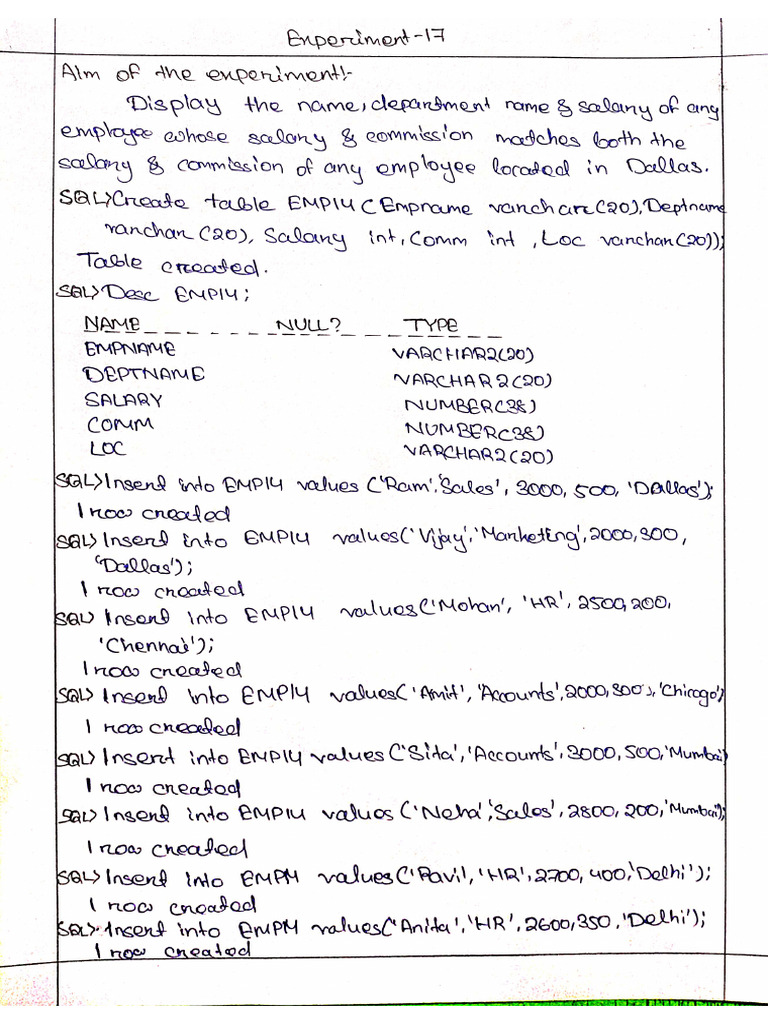 Experiment-17
Aim of the experiment:-
Display the name, department name & salary of any
employee whose salary & commission matches both the
salary & commission of any employee located in Dallas.
SQL>Create table EMP14 (Empname varchar(20), Deptname
varchar (20), Salary int, Comm int, Loc varchar(20));
Table created.
SQL>Desc EMP14;
NAME NULL? TYPE
EMPNAME VARCHAR2(20)
DEPTNAME VARCHAR2(20)
SALARY NUMBER(38)
COMM NUMBER(38)
LOC VARCHAR2(20)
SQL>Insert into EMP14 values ('Ram','Sales', 3000, 500, 'Dallas');
1 row created
SQL>Insert into EMP14 values('Vijay','Marketing',2000,300,
'Dallas');
1 row created
SQL>Insert into EMP14 values('Mohan', 'HR', 2500,200,
'Chennai');
1 row created
SQL>Insert into EMP14 values('Amit', 'Accounts',2000,300),'Chicago')
1 row created
SQL>Insert into EMP14 values('Sita','Accounts',3000,500,'Mumbai)
1 row created
SQL>Insert into EMP14 values ('Neha','Sales',2800,200,'Mumbai');
1 row created
SQL>Insert into EMP14 values('Ravi', 'HR',2700,400,'Delhi');
1 row created
SQL>Insert into EMP14 values('Anita','HR',2600,350,'Delhi');
1 row created